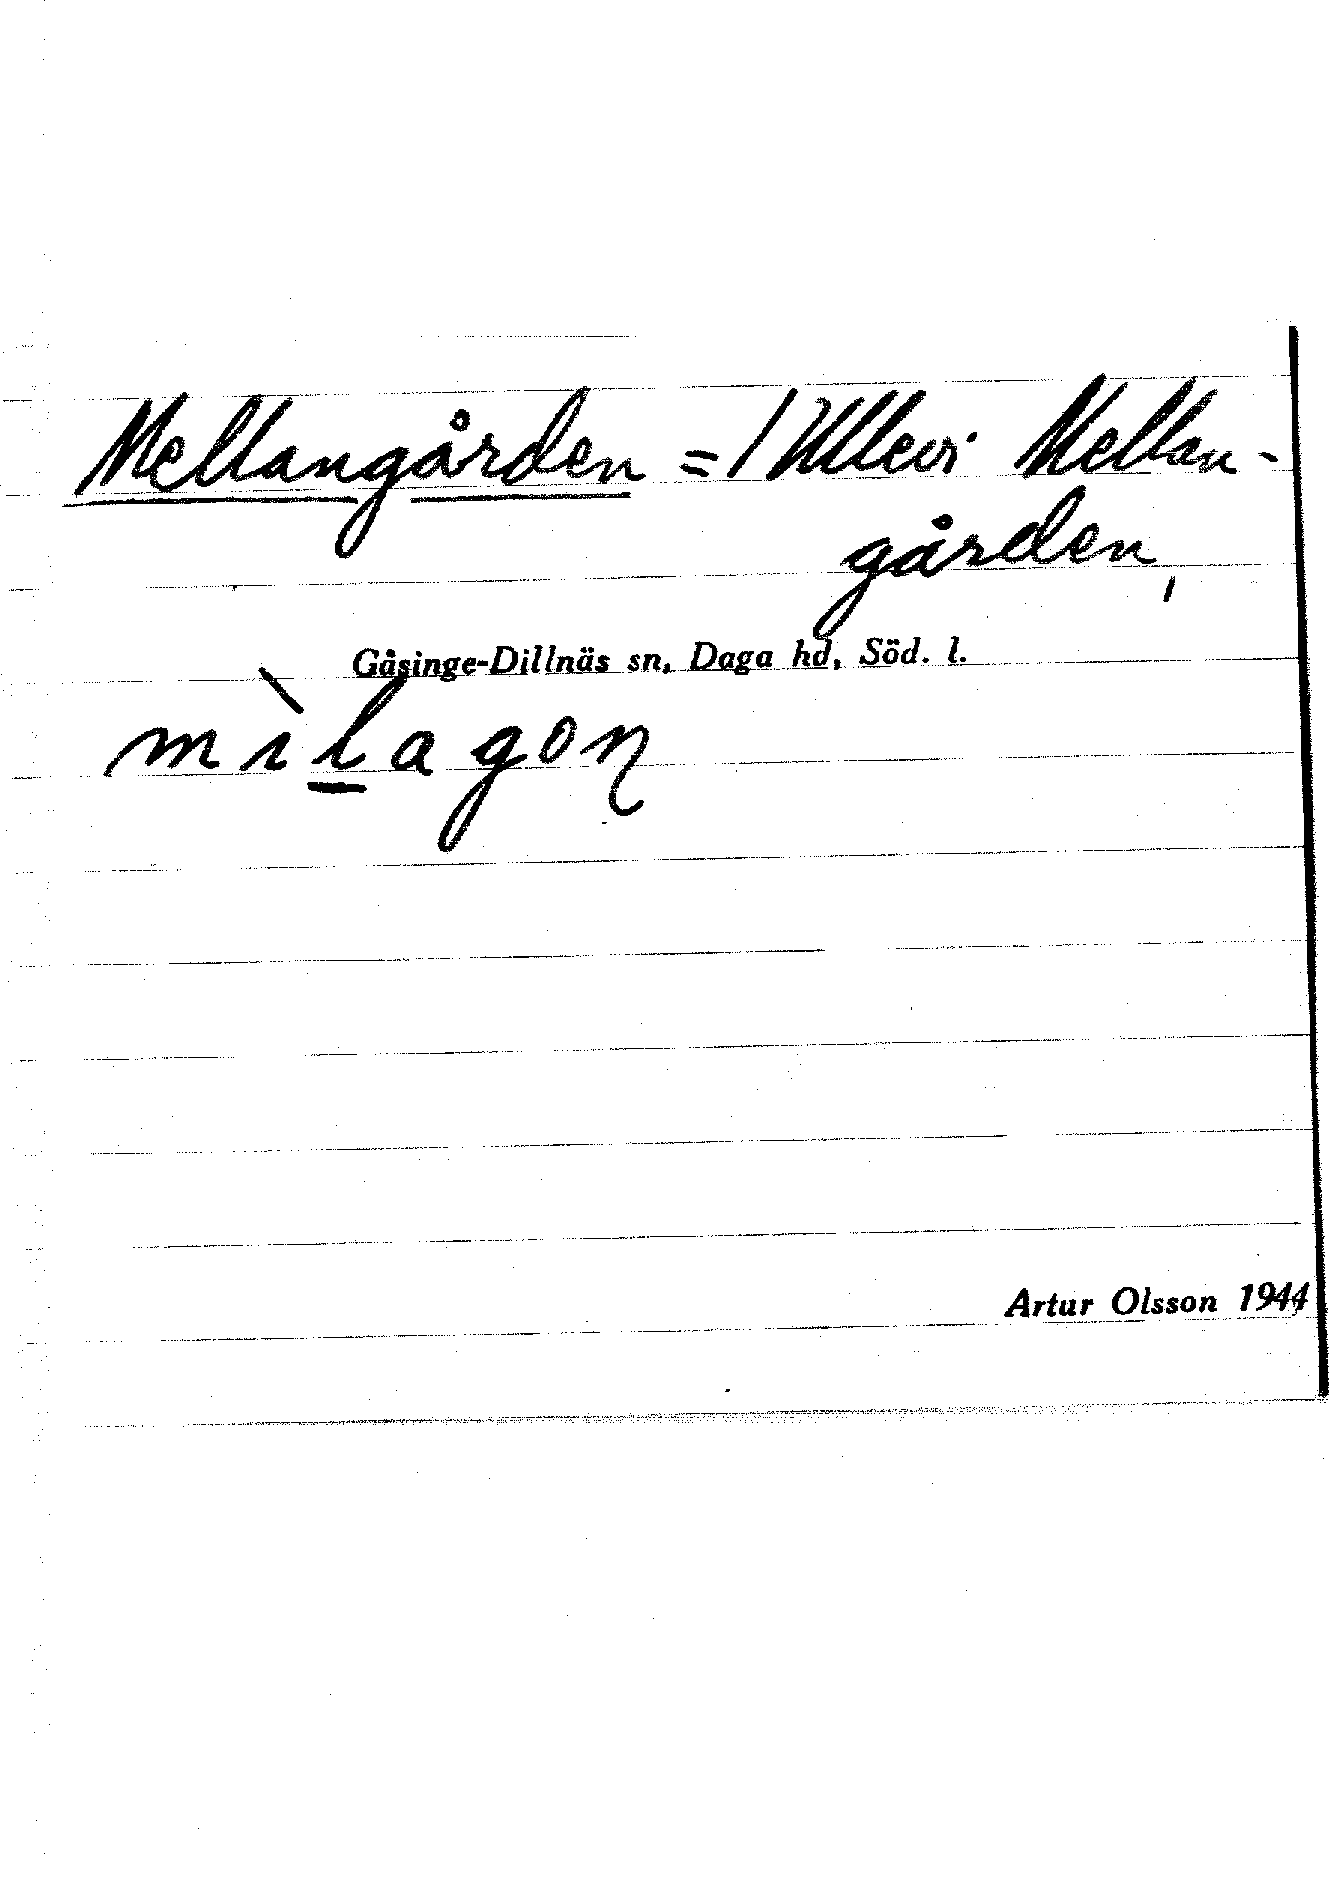 Mellangården = / Ullevi Mellan-
gården,
Gåsinge-Dillnäs sn, Daga hd, Söd. l.
mìlagoɳ
Artur Olsson 1944